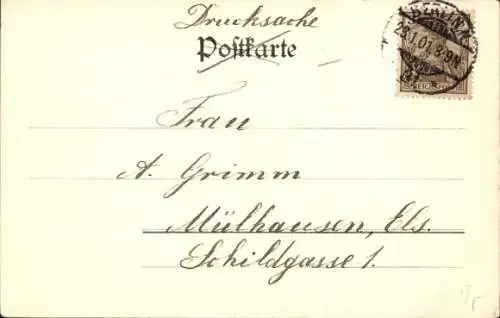 Drucksache
Postkarte
BERLIN, N.
23.1.01. 8-9N.
Frau
A. Grimm
Mülhausen, Els.
Schildgasse 1.